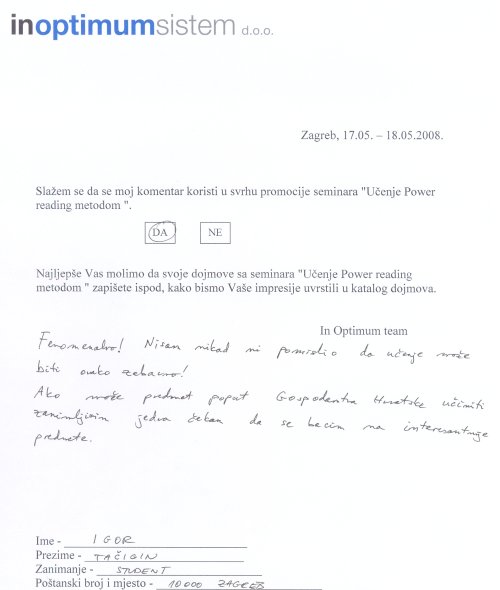 inoptimumsistem d.o.o.
Zagreb, 17.05. – 18.05.2008.
Slažem se da se moj komentar koristi u svrhu promocije seminara "Učenje Power
reading metodom ".
DA NE
Najljepše Vas molimo da svoje dojmove sa seminara "Učenje Power reading
metodom " zapišete ispod, kako bismo Vaše impresije uvrstili u katalog dojmova.
In Optimum team
Fenomenalno! Nisam nikad ni pomislio da učenje može
biti ovako zabavno!
Ako može predmet poput Gospodarstva Hrvatske učiniti
zanimljivim jedva čekam da se bacim na interesantnije
predmete.
Ime - IGOR
Prezime - TAČIGIN
Zanimanje - STUDENT
Poštanski broj i mjesto - 10000 ZAGREB